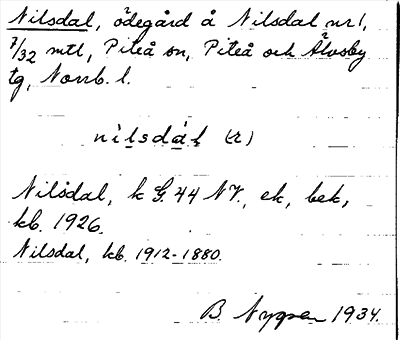 Nilsdal, ödegård å Nilsdal nr 1,
7/32 mtl, Piteå sn, Piteå och Älvsby
tg, Norrb. l.
nilsdal (r)
Nilsdal, k G. 44 NV., ek, bek,
kb. 1926.
Nilsdal, kb. 1912-1880.
B. Nygren 1934.